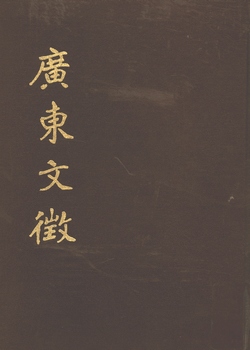 廣東文徵